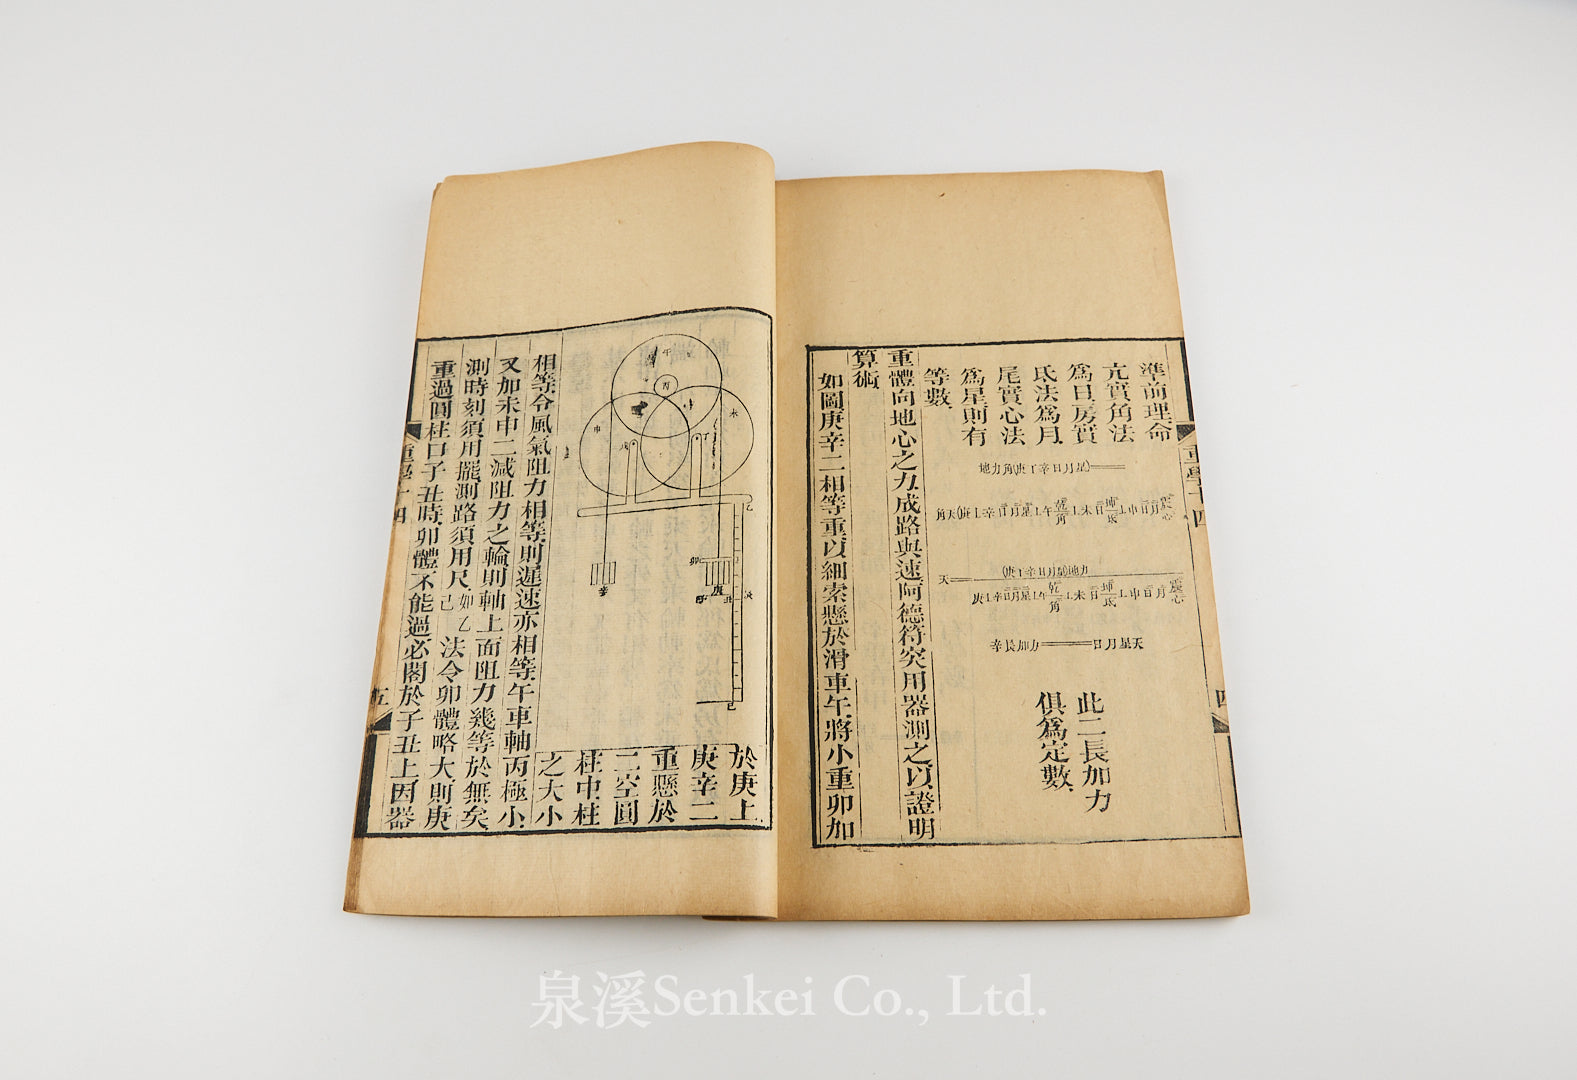 準前理命
亢實角法
為日房實
氐法為月
尾實心法
為星則有
等數
此二長加力
俱為定數
重體向地心之力成路與速阿德符突用器測之以證明
算術
如圖庚辛二相等重以細索懸於滑車午將小重卯加
重學十四
四
於庚上
庚辛二
重懸於
二空圓
柱中柱
之大小
相等令風氣阻力相等則遲速亦相等午車軸丙極小
又加未申二減阻力之輪則軸上面阻力幾等於無矣
測時刻須用擺測路須用尺如乙己法令卯體略大則庚
重過圓柱口子丑時卯體不能過必閣於子丑上因器
重學十四
五
泉溪Senkei Co., Ltd.